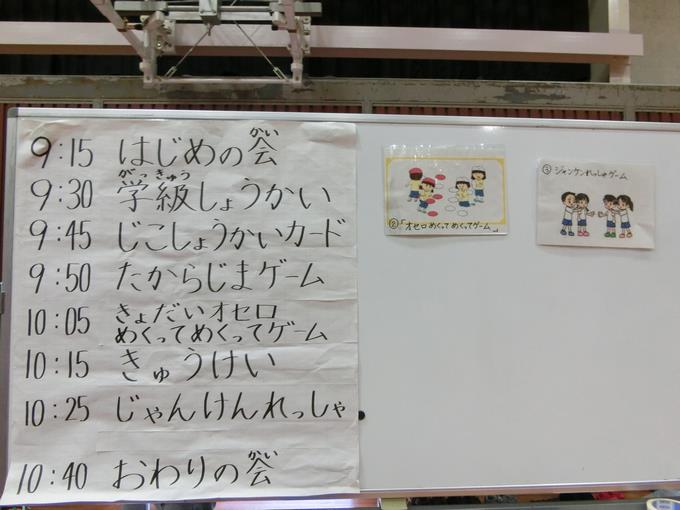 9:15 はじめの会
がい
9:30 学級しょうかい
がっきゅう
9:45 じこしょうかいカード
9:50 たからじまゲーム
10:05 きょだいオセロ
めくってめくってゲーム
10:15 きゅうけい
10:25 じゃんけんれっしゃ
10:40 おわりの会
がい
②「オセロめくってめくってゲーム」
③ ジャンケンれっしゃゲーム